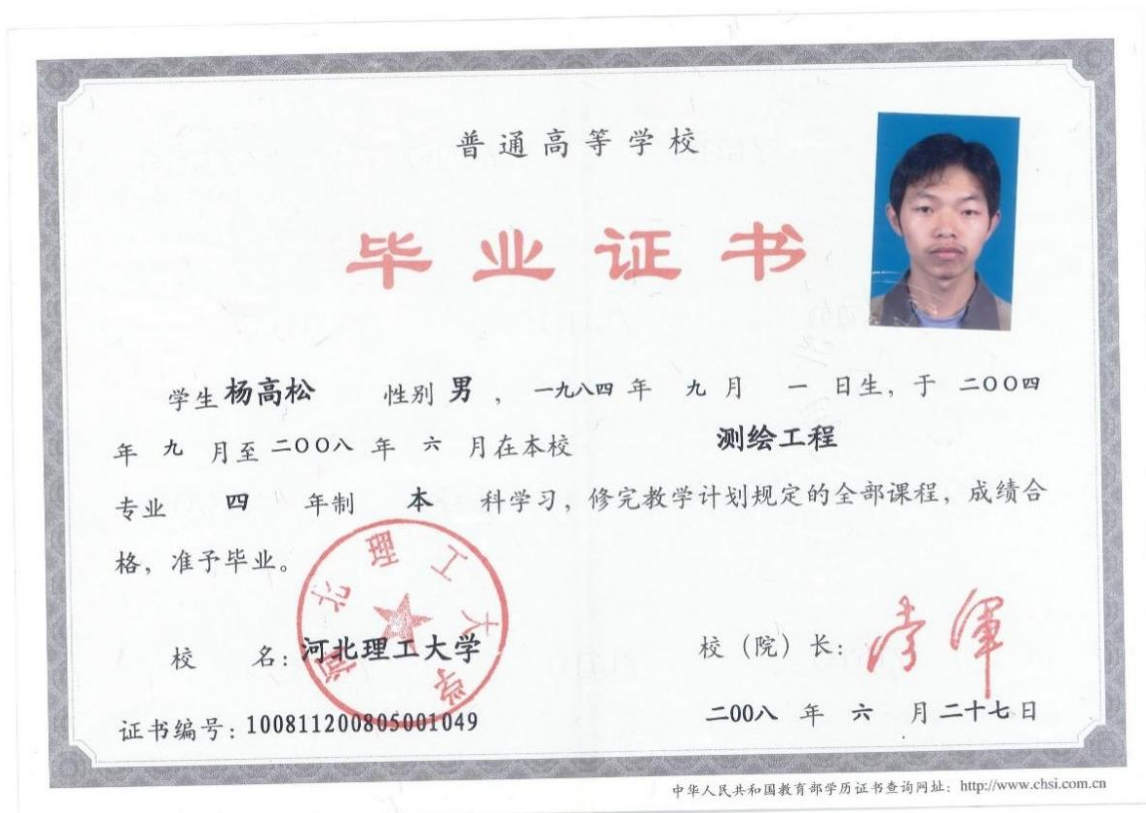 普通高等学校
毕业证书
学生 杨高松 性别 男 , 一九八四 年 九 月 一 日生, 于 二〇〇四
年 九 月至 二〇〇八 年 六 月在本校 测绘工程
专业 四 年制 本 科学习, 修完教学计划规定的全部课程, 成绩合
格, 准予毕业。
河北理工大学
校 名: 河北理工大学
校（院）长:
证书编号: 100811200805001049
二〇〇八 年 六 月 二十七 日
中华人民共和国教育部学历证书查询网址: http://www.chsi.com.cn